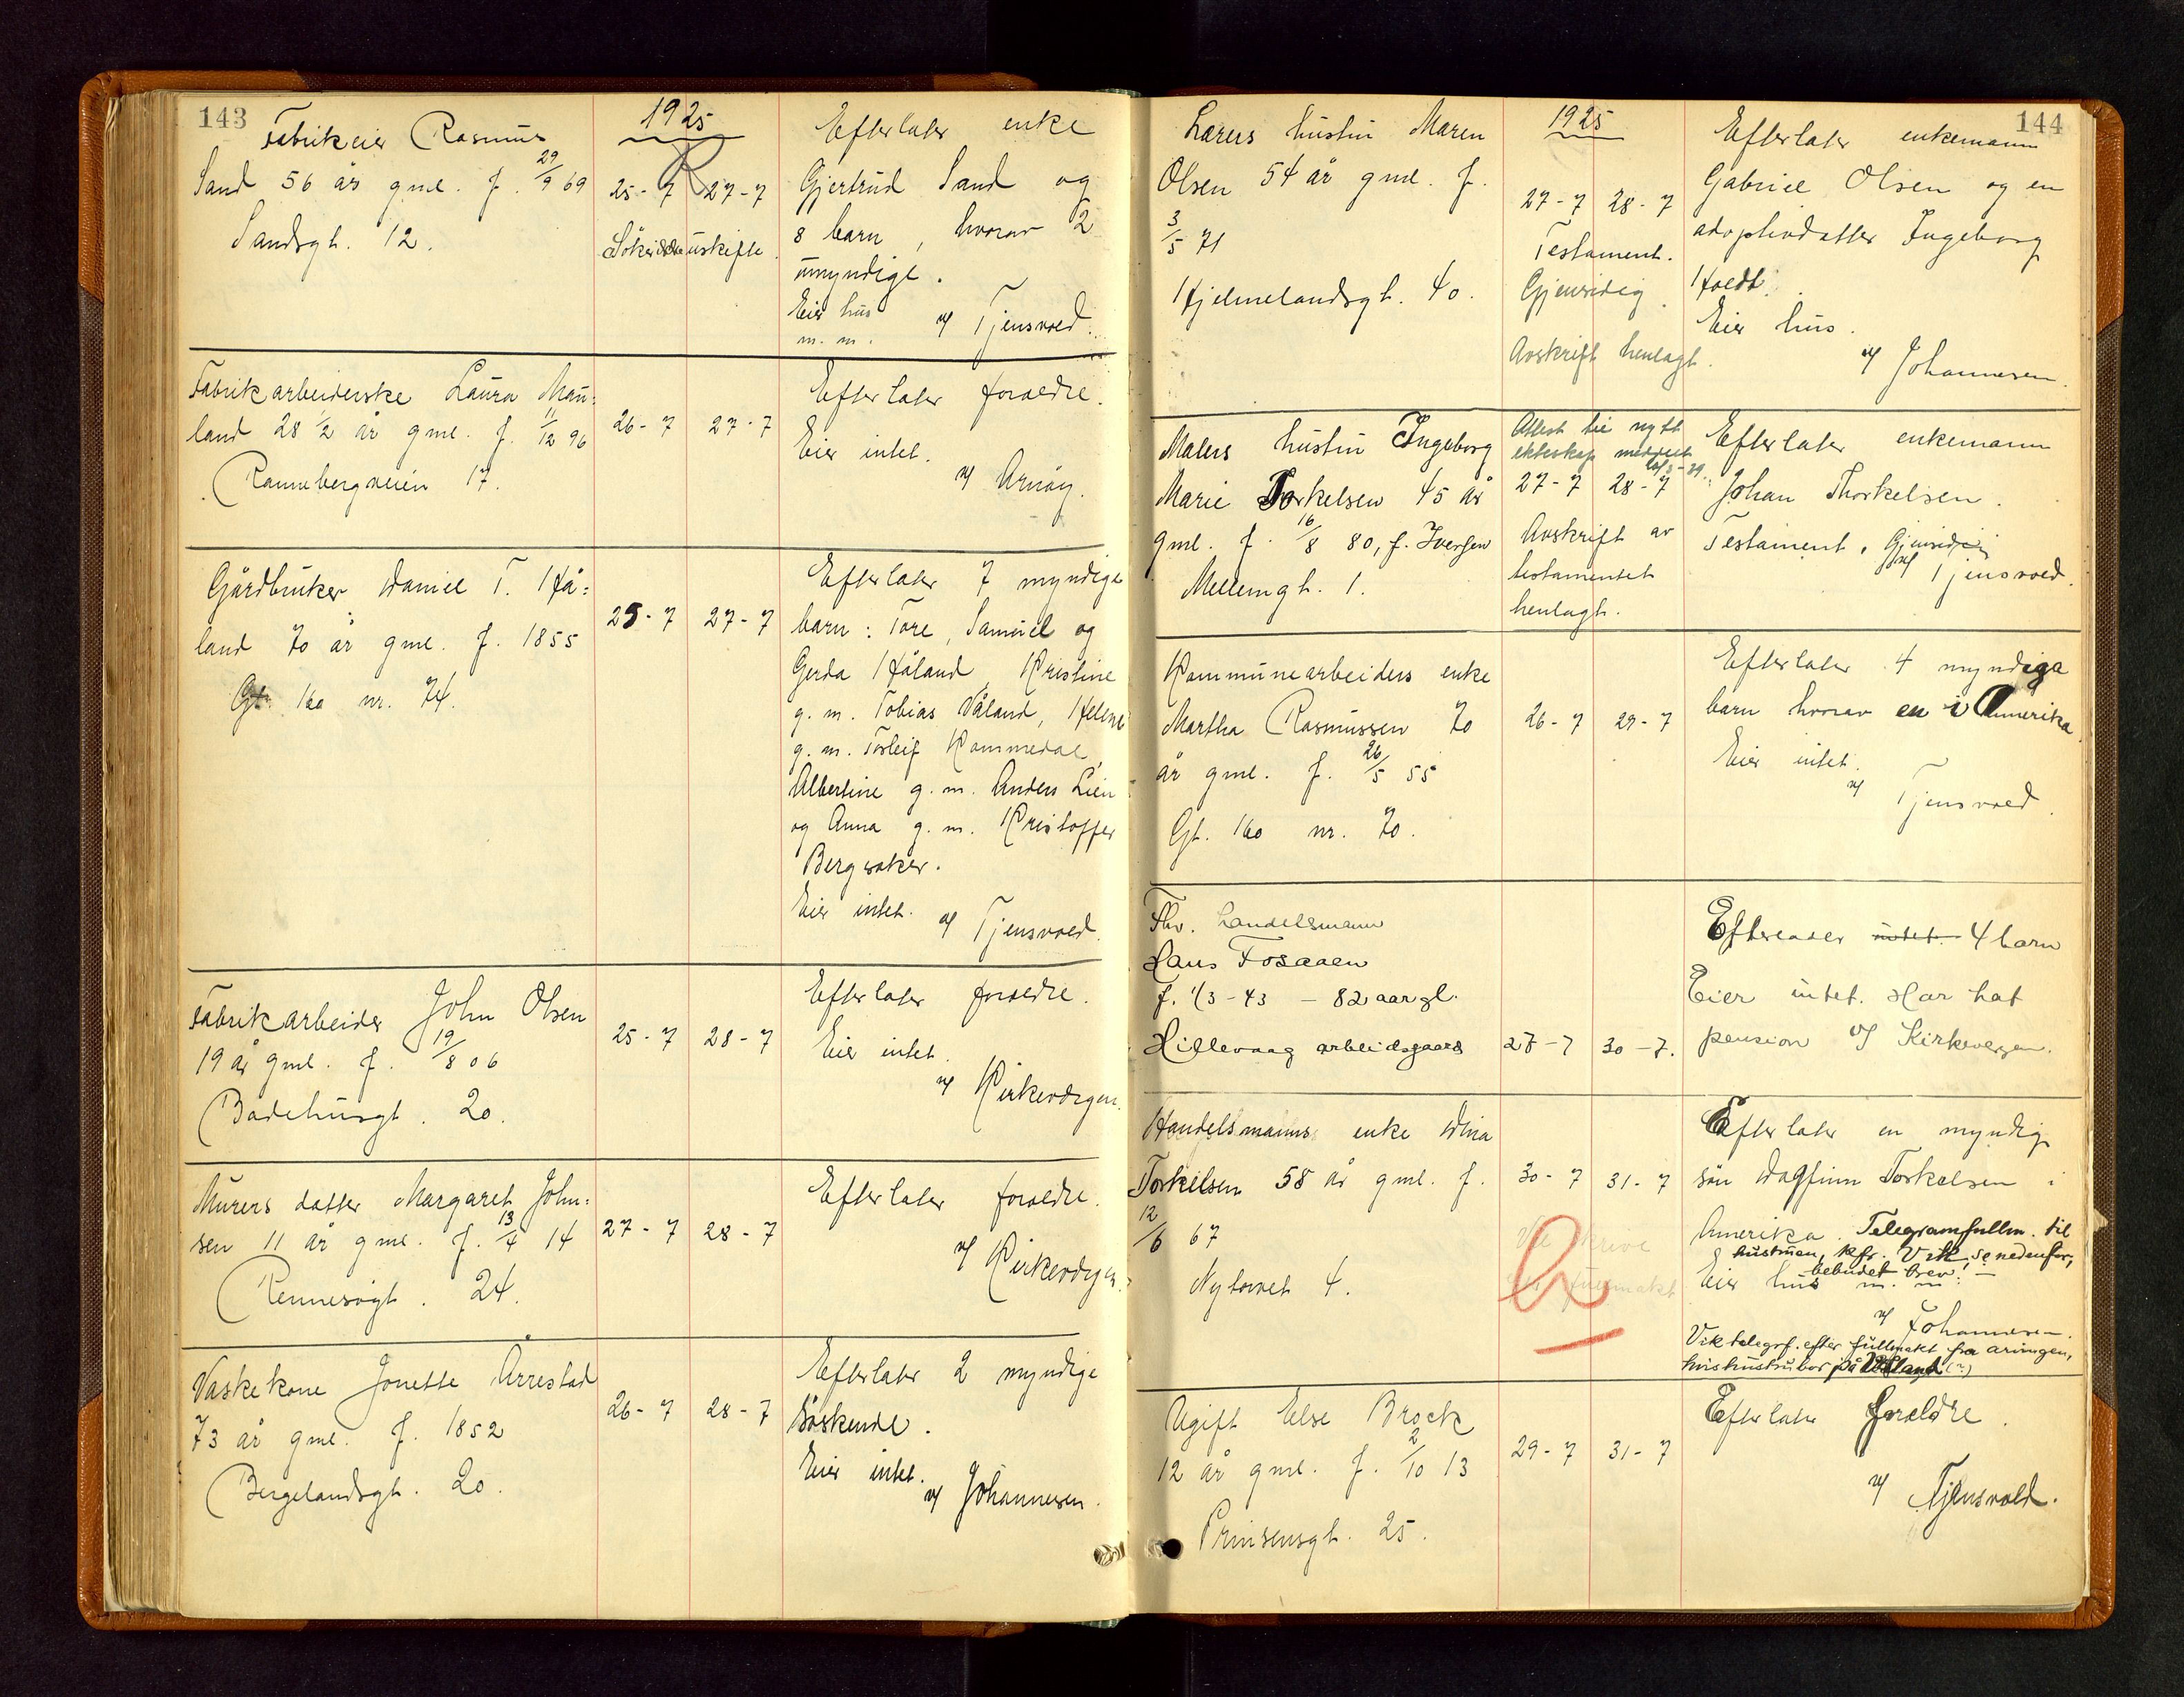 143
1925
Fabrikeier Rasmus
Sand 56 år gml. f. 29/9 69
Sandsgt. 12.
25-7 27-7
Söker uskifte
Efterlater enke
Gjertrud Sand og
8 barn, hvorav 2
umyndige.
Eier hus
m. m.
v/ Tjensvold.
Fabrikarbeiderske Laura Mau-
land 28 1/2 år gml. f. 11/12 96
Rannebergveien 17.
26-7 27-7
Efterlater foreldre.
Eier intet.
v/ Arnöy.
Gårdbruker Daniel T. Hå-
land 70 år gml. f. 1855
Gt. 160 nr. 74.
25-7 27-7
Efterlater 7 myndige
barn: Tore, Samuel og
Gerda Håland, Kristine
g. m. Tobias Våland, Helene
g. m. Torleif Hommedal,
Albertine g. m. Anders Lien
og Anna g. m. Kristoffer
Bergsaker.
Eier intet.
v/ Tjensvold.
Fabrikarbeider John Olsen
19 år gml. f. 19/8 06
Badehusgt. 20.
25-7 28-7
Efterlater foreldre.
Eier intet.
v/ Kirkevergen.
Murers datter Margaret John-
sen 11 år gml. f. 13/4 14
Rennesögt. 24.
27-7 28-7
Efterlater foreldre.
v/ Kirkevergen.
Vaskekone Jonette Årrestad
73 år gml. f. 1852
Bergelandsgt. 20.
26-7 28-7
Efterlater 2 myndige
söskende.
Eier intet.
v/ Johannesen.
144
1925
Lærers hustru Maren
Olsen 54 år gml. f.
3/5 71
Hjelmelandsgt. 40.
27-7 28-7
Testament.
Gjensidig.
Avskrift henlagt.
Efterlater enkemann
Gabriel Olsen og en
adoptivdatter Ingeborg
Hoedt.
Eier hus.
v/ Johannesen.
Malers hustru Ingeborg
Marie Torkelsen 45 år
gml. f. 16/8 80, f. Iversen
Mellemgt. 1.
Attest til nytt
ekteskap meddelt
27-7 28-7
Avskrift av
testamentet
henlagt.
Efterlater enkemann
Johan Thorkelsen.
Testament, Gjensidig
v/ Tjensvold.
Kommunearbeiders enke
Martha Rasmussen 70
år gml. f. 26/5 55
Gt. 160 nr. 70.
26-7 29-7
Efterlater 4 myndige
barn hvorav en i Amerika
Eier intet.
v/ Tjensvold.
Fhv. Landelsmann
Hans Fosaaen
f. 1/3-43 - 82 aar gl.
Hillevaag arbeidsgaard
28-7 30-7.
Efterlader intet. 4 barn
Eier intet. Har hat
pension v/ Kirkevergen.
Handelsmanns enke Dina
Torkelsen 58 år gml. f.
12/6 67
Nytorvet 4.
30-7 31-7
Vil skrive
fullmakt
Efterlater en myndig
sön Dagfinn Torkelsen i
Amerika. Telegramfullm. til
hustruen, kfr. Vik, se nedenfor,
bebudet brev. -
Eier hus m. m.
v/ Johannesen.
Vik telegrf. efter fullmakt fra arvingen,
hvis hustru bor på
Ugift Else Brock
12 år gml. f. 2/10 13
Prinsensgt. 25.
29-7 31-7
Efterlater foreldre.
v/ Tjensvold.